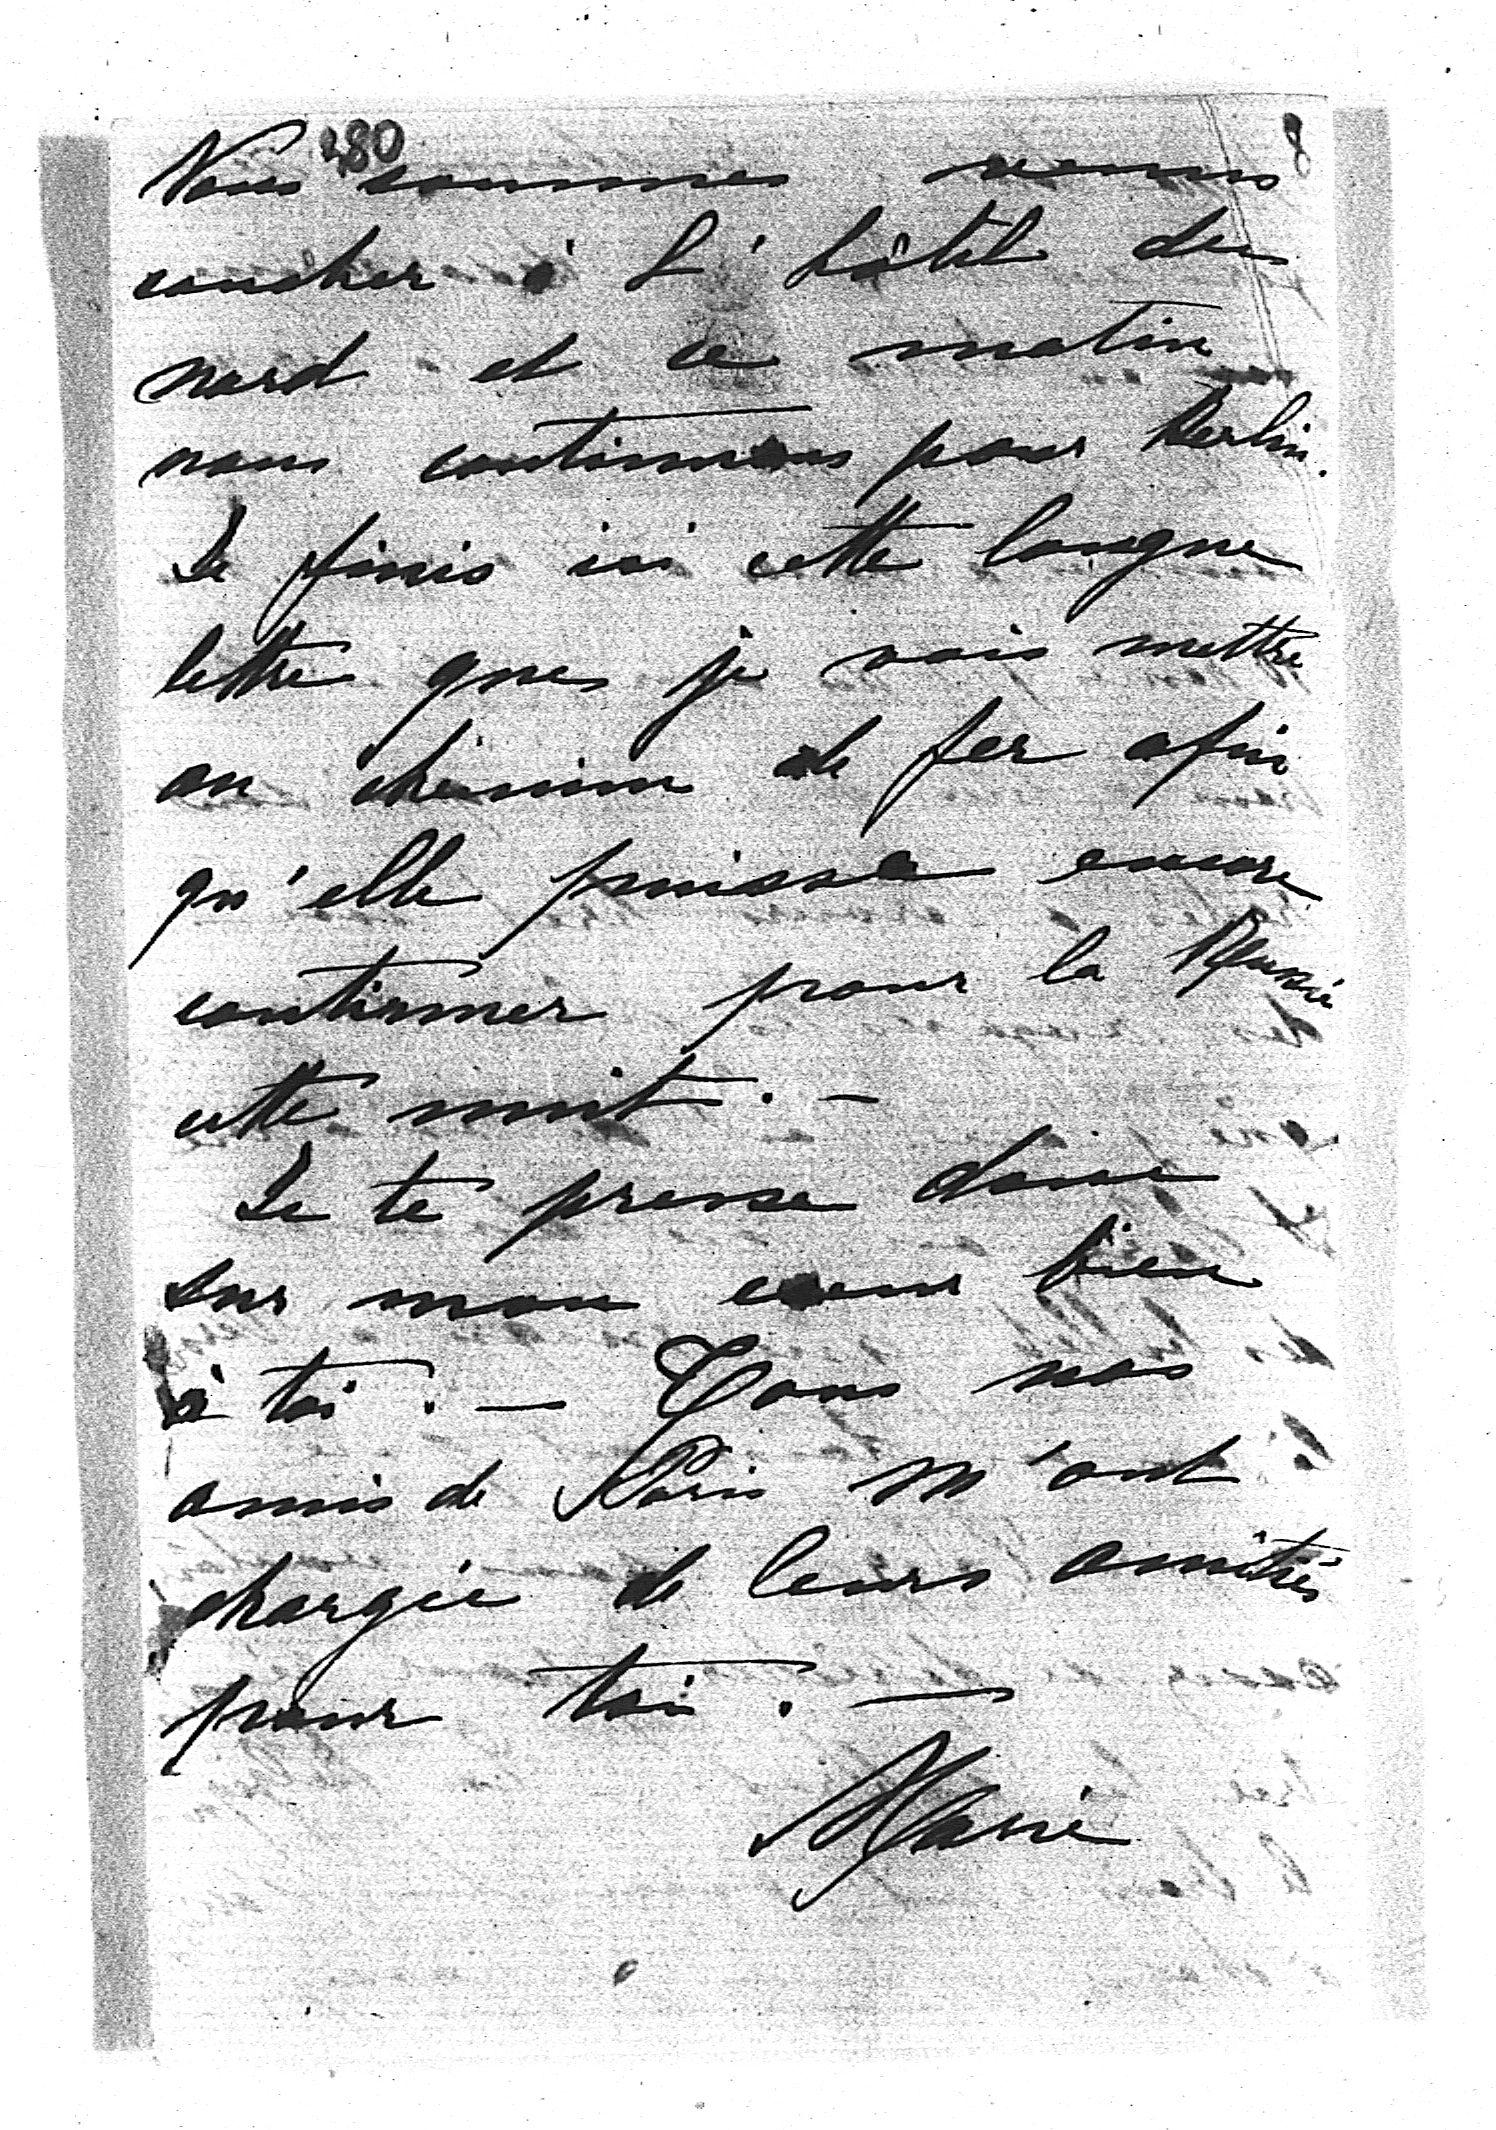 380
8
Nous sommes venus
coucher à l'hôtel du
nord et ce matin
nous continuons pour Berlin.
Je finis ici cette longue
lettre que je vais mettre
au chemin de fer afin
qu'elle puisse encore
continuer pour la Russie
cette nuit. —
Je te presse donc
sur mon coeur bien
à toi. — Tous nos
amis de Paris m'ont
chargée de leurs amitiés
pour toi. —
Marie